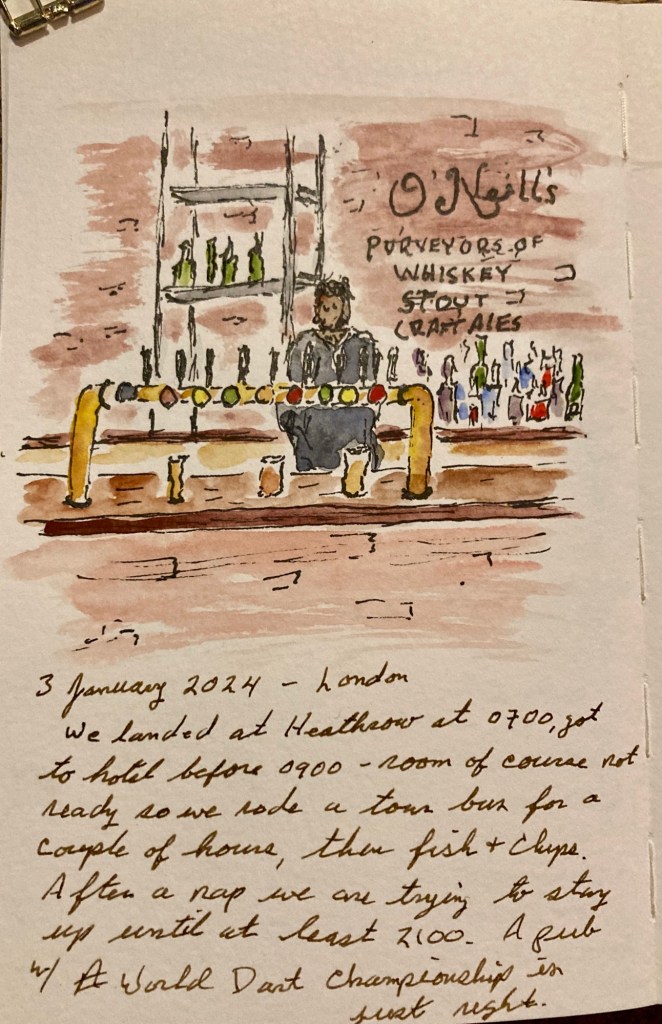 O'Neill's
PURVEYORS OF
WHISKEY
STOUT
CRAFT ALES
3 January 2024 - London
We landed at Heathrow at 0700, got
to hotel before 0900 - room of course not
ready so we rode a tour bus for a
couple of hours, then fish + chips.
After a nap we are trying to stay
up until at least 2100. A pub
w/ A World Dart Championship is
just right.